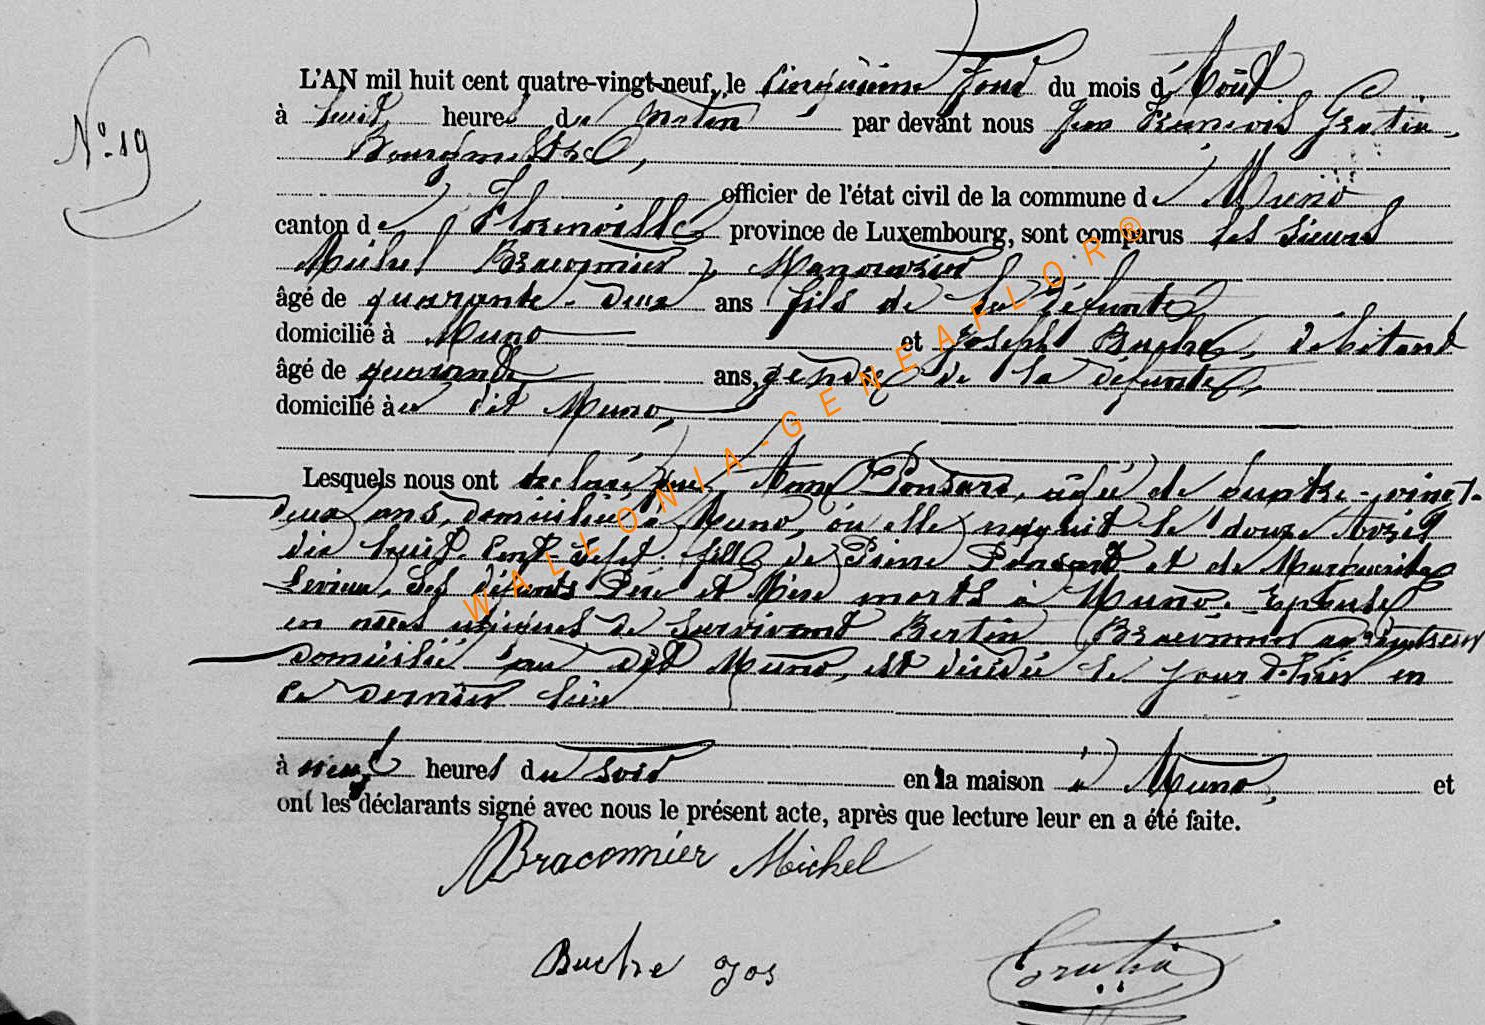 N° 19
L'AN mil huit cent quatre-vingt-neuf, le cinquième jour du mois d'Août
à huit heures du matin par devant nous Jean François Gratia,
Bourgmestre,
officier de l'état civil de la commune de Muno
canton de Florenville province de Luxembourg, sont comparus les sieurs
Michel Braconnier, Manouvrier
âgé de quarante-deux ans fils de la défunte
domicilié à Muno et Joseph Buchet, débitant
âgé de quarante ans, gendre de la défunte,
domicilié à dit Muno,
Lesquels nous ont déclaré que Ponsard, âgée de quatre-vingt-
deux ans, domiciliée à Muno, où elle naquit le douze Avril
dix huit cent sept fille de Pierre Ponsard et de Marguerite
défunts Père et Mère morts à Muno. Epouse
en noces uniques de survivant Bertin Braconnier
domicilié au dit Muno, est décédée le jour d'hier en
ce dernier lieu
à neuf heures du soir en la maison à Muno, et
ont les déclarants signé avec nous le présent acte, après que lecture leur en a été faite.
Braconnier Michel
Buche Jos
Gratia
WALLONIA-GENEAFLOR®